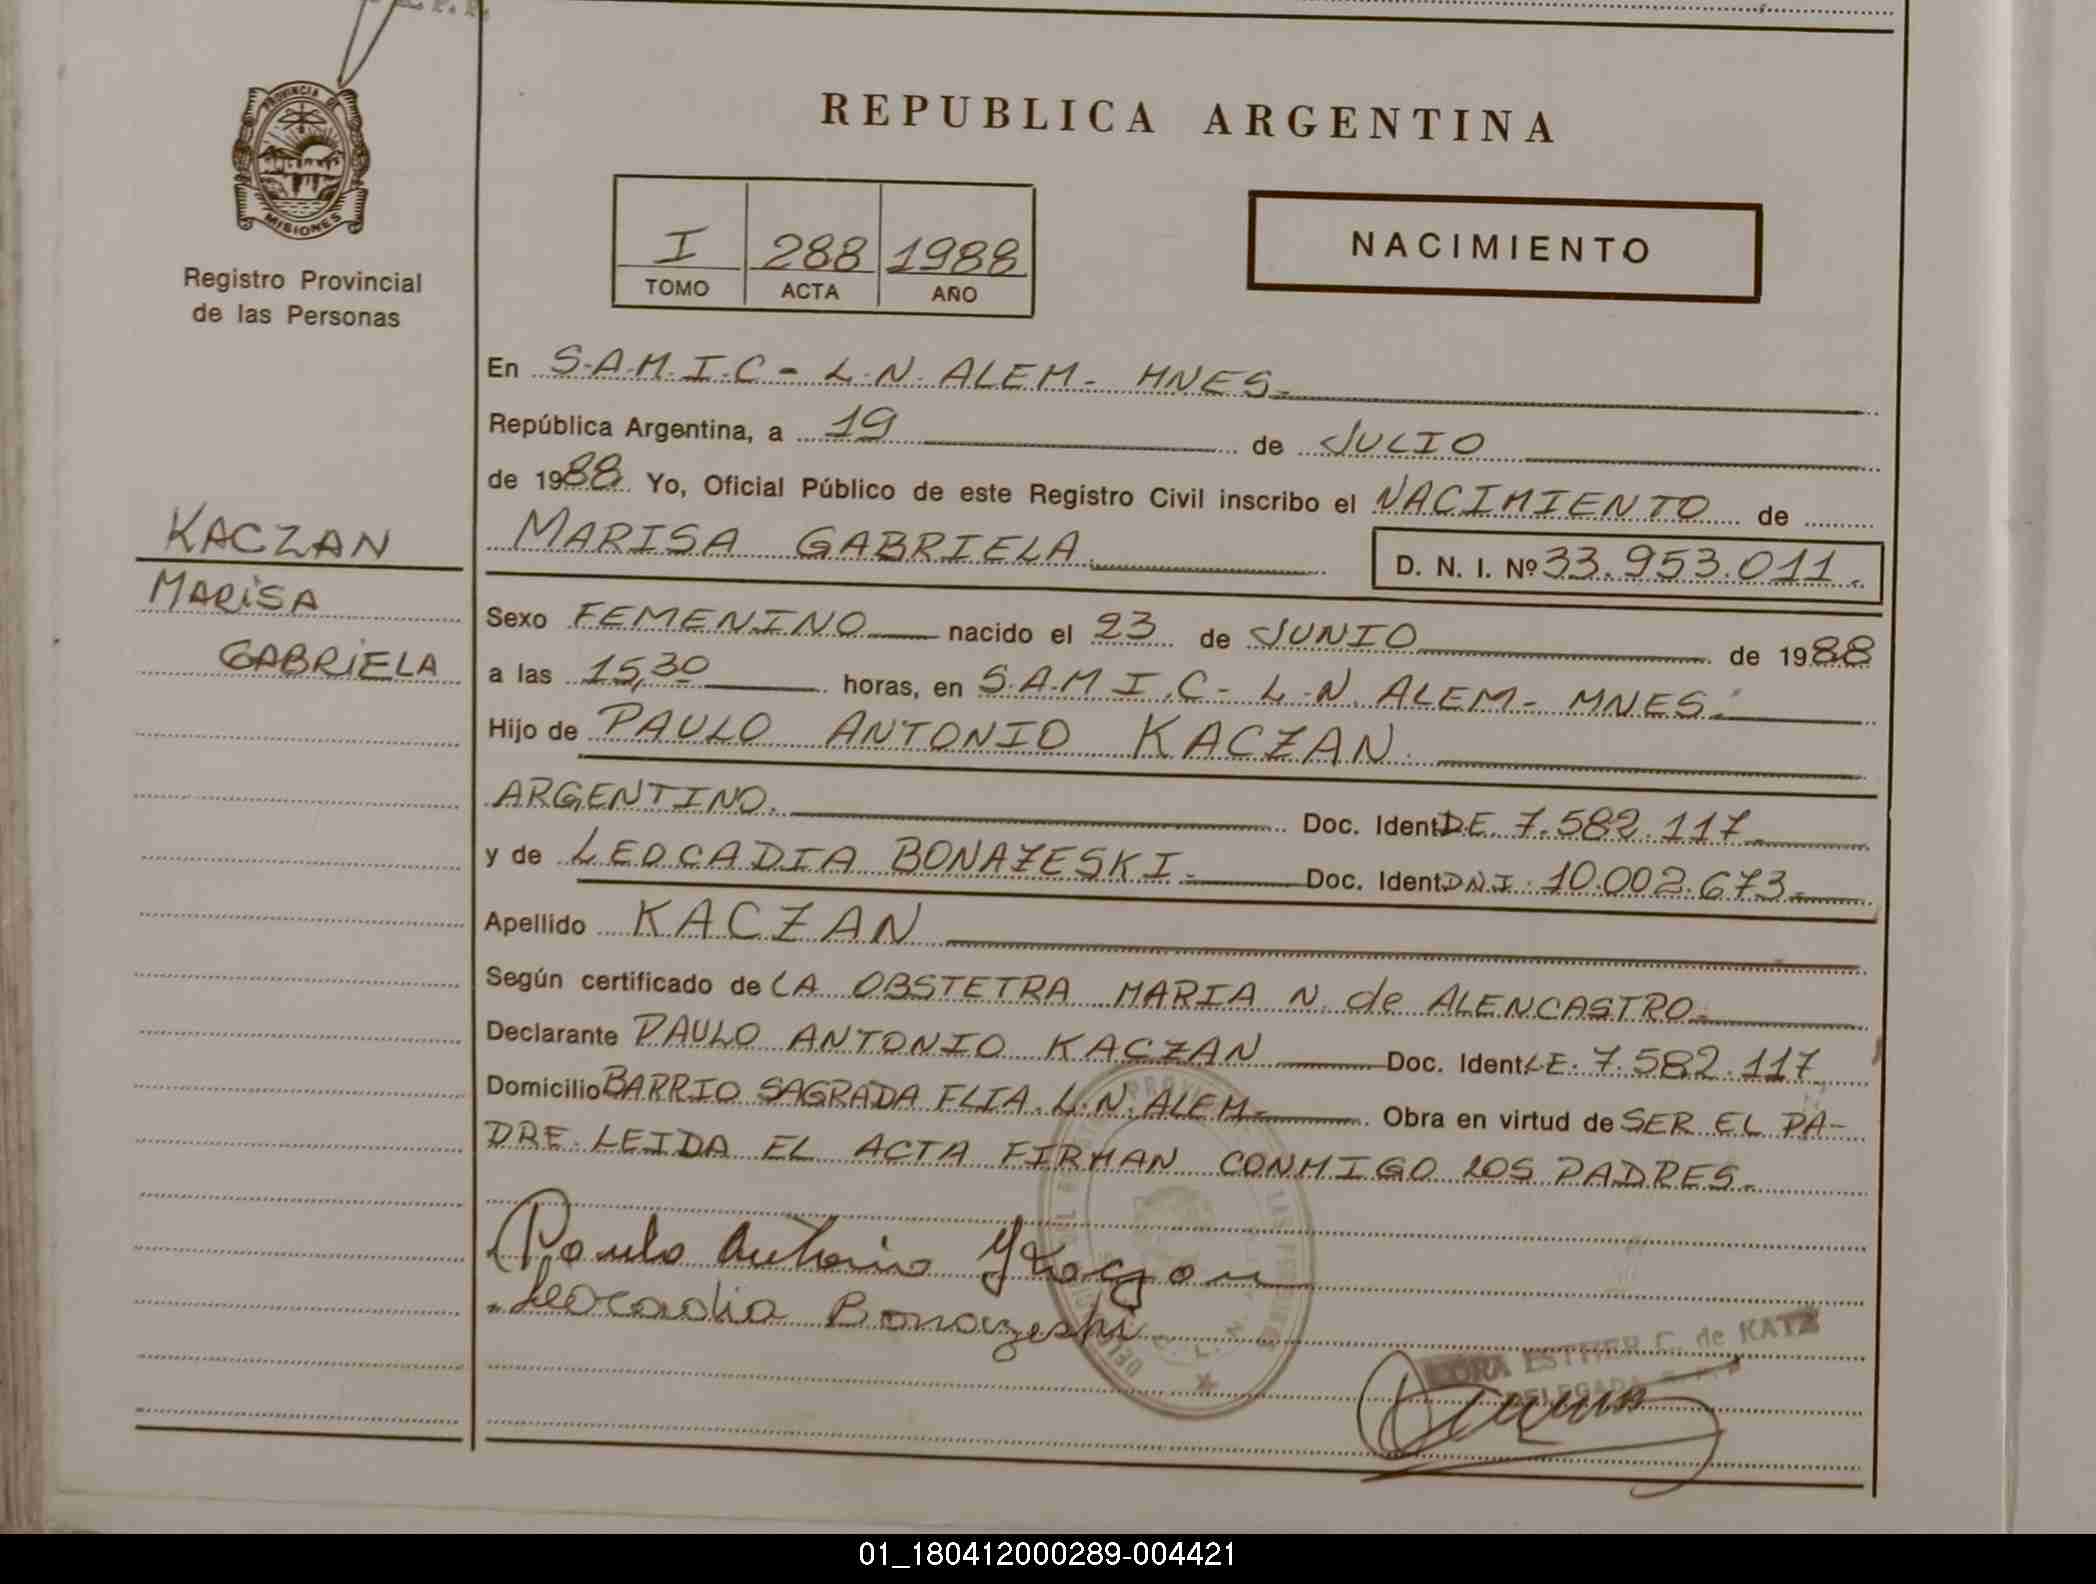 REPUBLICA ARGENTINA
PROVINCIA DE
MISIONES
Registro Provincial
de las Personas
I 288 1988
TOMO ACTA AÑO
NACIMIENTO
KACZAN
MARISA
GABRIELA
En S.A.M.I.C - L.N. ALEM - MNES.
República Argentina, a 19 de JULIO
de 1988 Yo, Oficial Público de este Registro Civil inscribo el NACIMIENTO de
MARISA GABRIELA D. N. I. Nº 33.953.011.
Sexo FEMENINO nacido el 23 de JUNIO de 1988
a las 15,30 horas, en S.A.M.I.C - L.N. ALEM - MNES.
Hijo de PAULO ANTONIO KACZAN.
ARGENTINO. Doc. Ident. D.E. 7.582.117
y de LEOCADIA BONAZESKI. Doc. Ident. D.N.I. 10.002.673
Apellido KACZAN
Según certificado de LA OBSTETRA MARIA N. de ALENCASTRO.
Declarante PAULO ANTONIO KACZAN Doc. Ident. L.E. 7.582.117
Domicilio BARRIO SAGRADA FLIA. L.N. ALEM. Obra en virtud de SER EL PA-
DRE. LEIDA EL ACTA FIRMAN CONMIGO LOS PADRES.
Paulo Antonio Kaczan
Leocadia Bonazeski
ESTHER C. de KATZ
DELEGADA
01_180412000289-004421